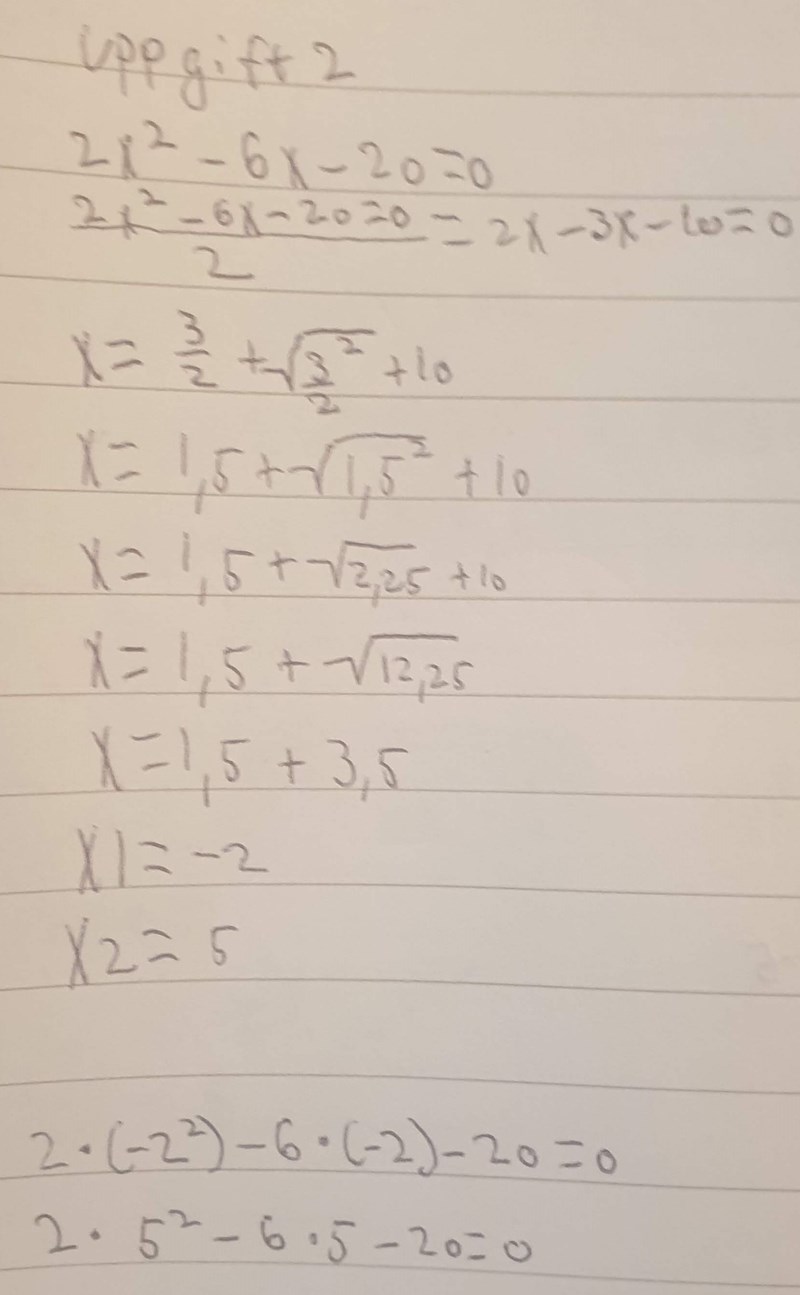 Uppgift 2
2x² - 6x - 20 = 0
(2x² - 6x - 20 = 0)/2 = 2x - 3x - 10 = 0
x = 3/2 + √(3/2²) + 10
x = 1,5 + √(1,5²) + 10
x = 1,5 + √2,25 + 10
x = 1,5 + √12,25
x = 1,5 + 3,5
x1 = -2
x2 = 5
2 · (-2²) - 6 · (-2) - 20 = 0
2 · 5² - 6 · 5 - 20 = 0